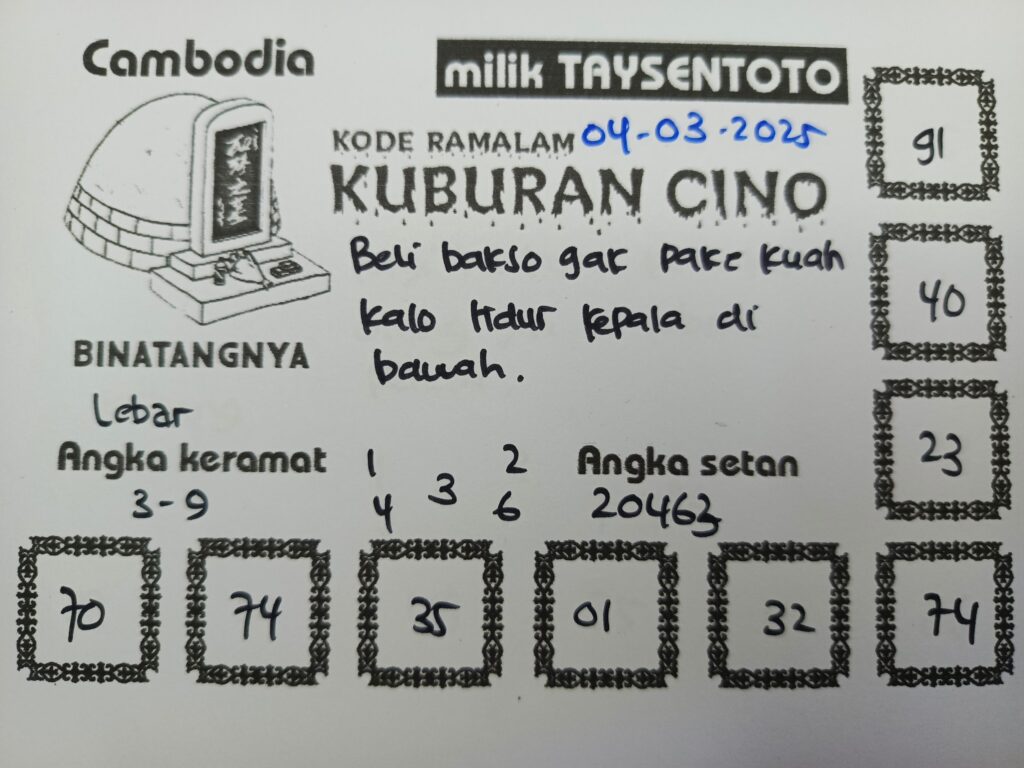 Cambodia
milik TAYSENTOTO
KODE RAMALAM 04-03-2025
KUBURAN CINO
Beli bakso gak pake kuah
kalo tidur kepala di
bawah.
BINATANGNYA
Lebar
Angka keramat
3-9
1 2
3
4 6
Angka setan
20463
91
40
23
70 74 35 01 32 74